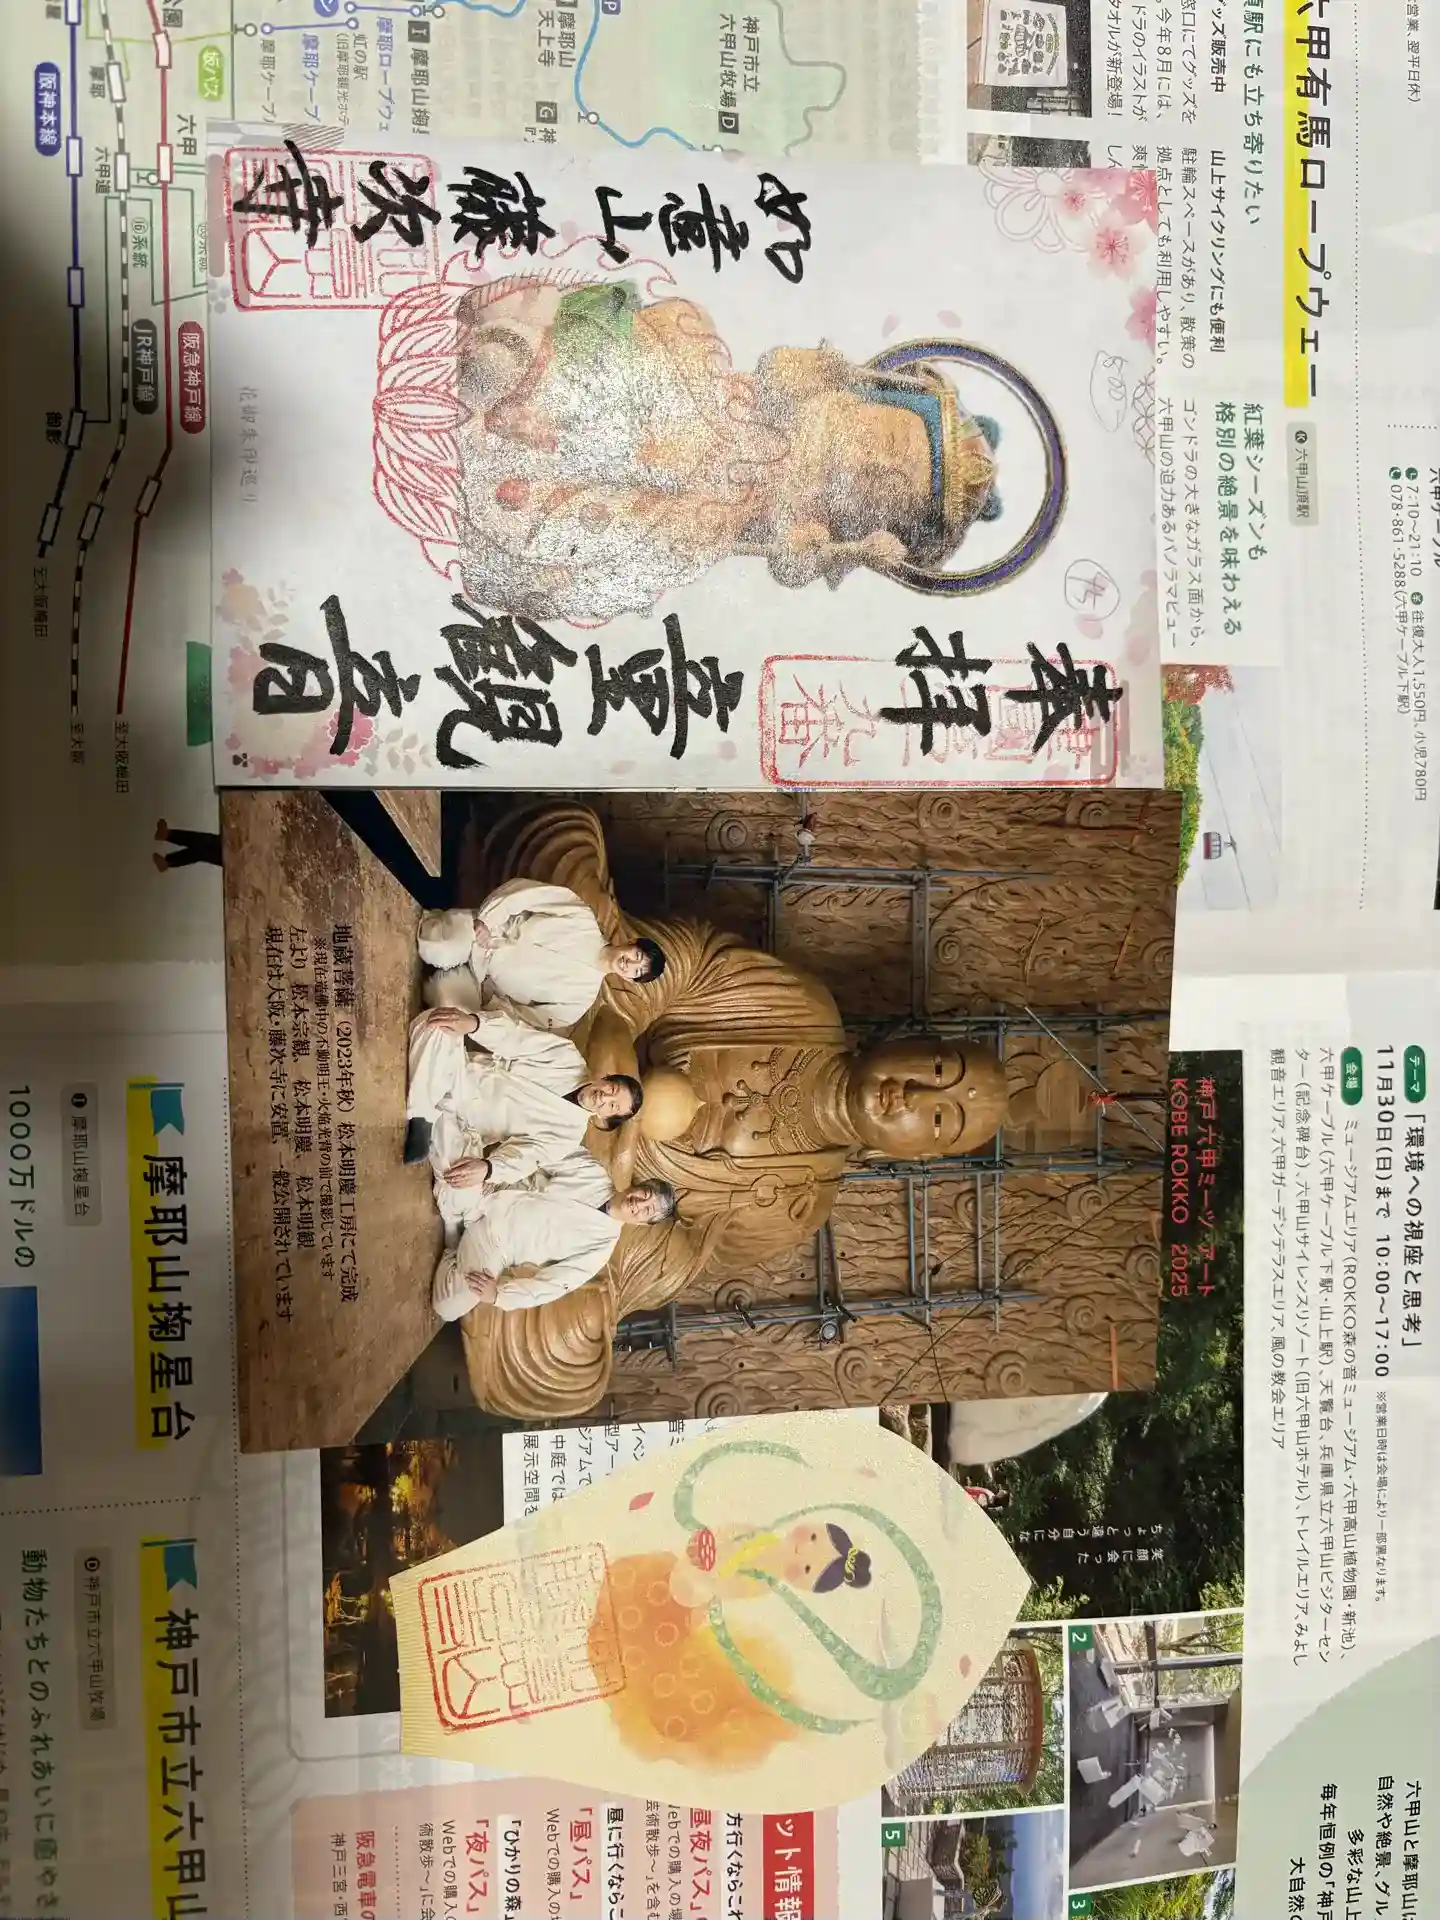 奉拝
童観音
如意山
藤次寺
花御朱印巡り
地蔵菩薩（2023年秋）松本明慶工房にて完成
※現在造佛中の不動明王・火焔光背の前で撮影しています
左より 松本宗観、松本明慶、松本明観
現在は大阪・藤次寺に安置、一般公開されています
神戸六甲ミーツ・アート
KOBE ROKKO 2025
笑顔に会った
ちょっと違う自分にな
六甲有馬ロープウェー
六甲山頂駅
頂駅にも立ち寄りたい
グッズ販売中
窓口にてグッズを
今年8月には、
ドラのイラストが
タオルが新登場！
山上サイクリングにも便利
駐輪スペースがあり、散策の
拠点としても利用しやすい。
紅葉シーズンも
格別の絶景を味わえる
ゴンドラの大きなガラス面から、
六甲山の迫力あるパノラマビュー
六甲ケーブル
7:10〜21:10 往復大人1,550円、小児780円
078・861・5288（六甲ケーブル下駅）
営業、翌平日休）
テーマ 「環境への視座と思考」
11月30日（日）まで 10:00〜17:00 ※営業日時は会場により一部異なります。
会場 ミュージアムエリア（ROKKO森の音ミュージアム・六甲高山植物園・新池）、
六甲ケーブル（六甲ケーブル下駅・山上駅）、天覧台、兵庫県立六甲山ビジターセン
ター（記念碑台）、六甲山サイレンスリゾート（旧六甲山ホテル）、トレイルエリア、みよし
観音エリア、六甲ガーデンテラスエリア、風の教会エリア
六甲山と摩耶山に
自然や絶景、グル
多彩な山上
毎年恒例の「神戸
大自然の
2
3
5
ット情報
方行くならこれ
昼夜パス」
Webでの購入の場
芸術散歩〜」を含む
昼に行くならこ
「昼パス」
Webでの購入の場
「ひかりの森」
「夜パス」
Webでの購入
術散歩〜」に会
阪急電車の
神戸三宮・西
中庭では
展示空間を
摩耶山掬星台
摩耶山掬星台
1000万ドルの
神戸市立六甲山
神戸市立六甲山牧場
動物たちとのふれあいに癒やさ
神戸市立
六甲山牧場 D
摩耶山
天上寺
I 摩耶山掬
摩耶ロープウェ
虹の駅
摩耶ケーブ
坂バス
G
P
阪神本線
阪急神戸線
JR神戸線
摩耶
六甲
六甲道
⑯系統
御影
至大阪梅田
至大阪
至大阪梅田